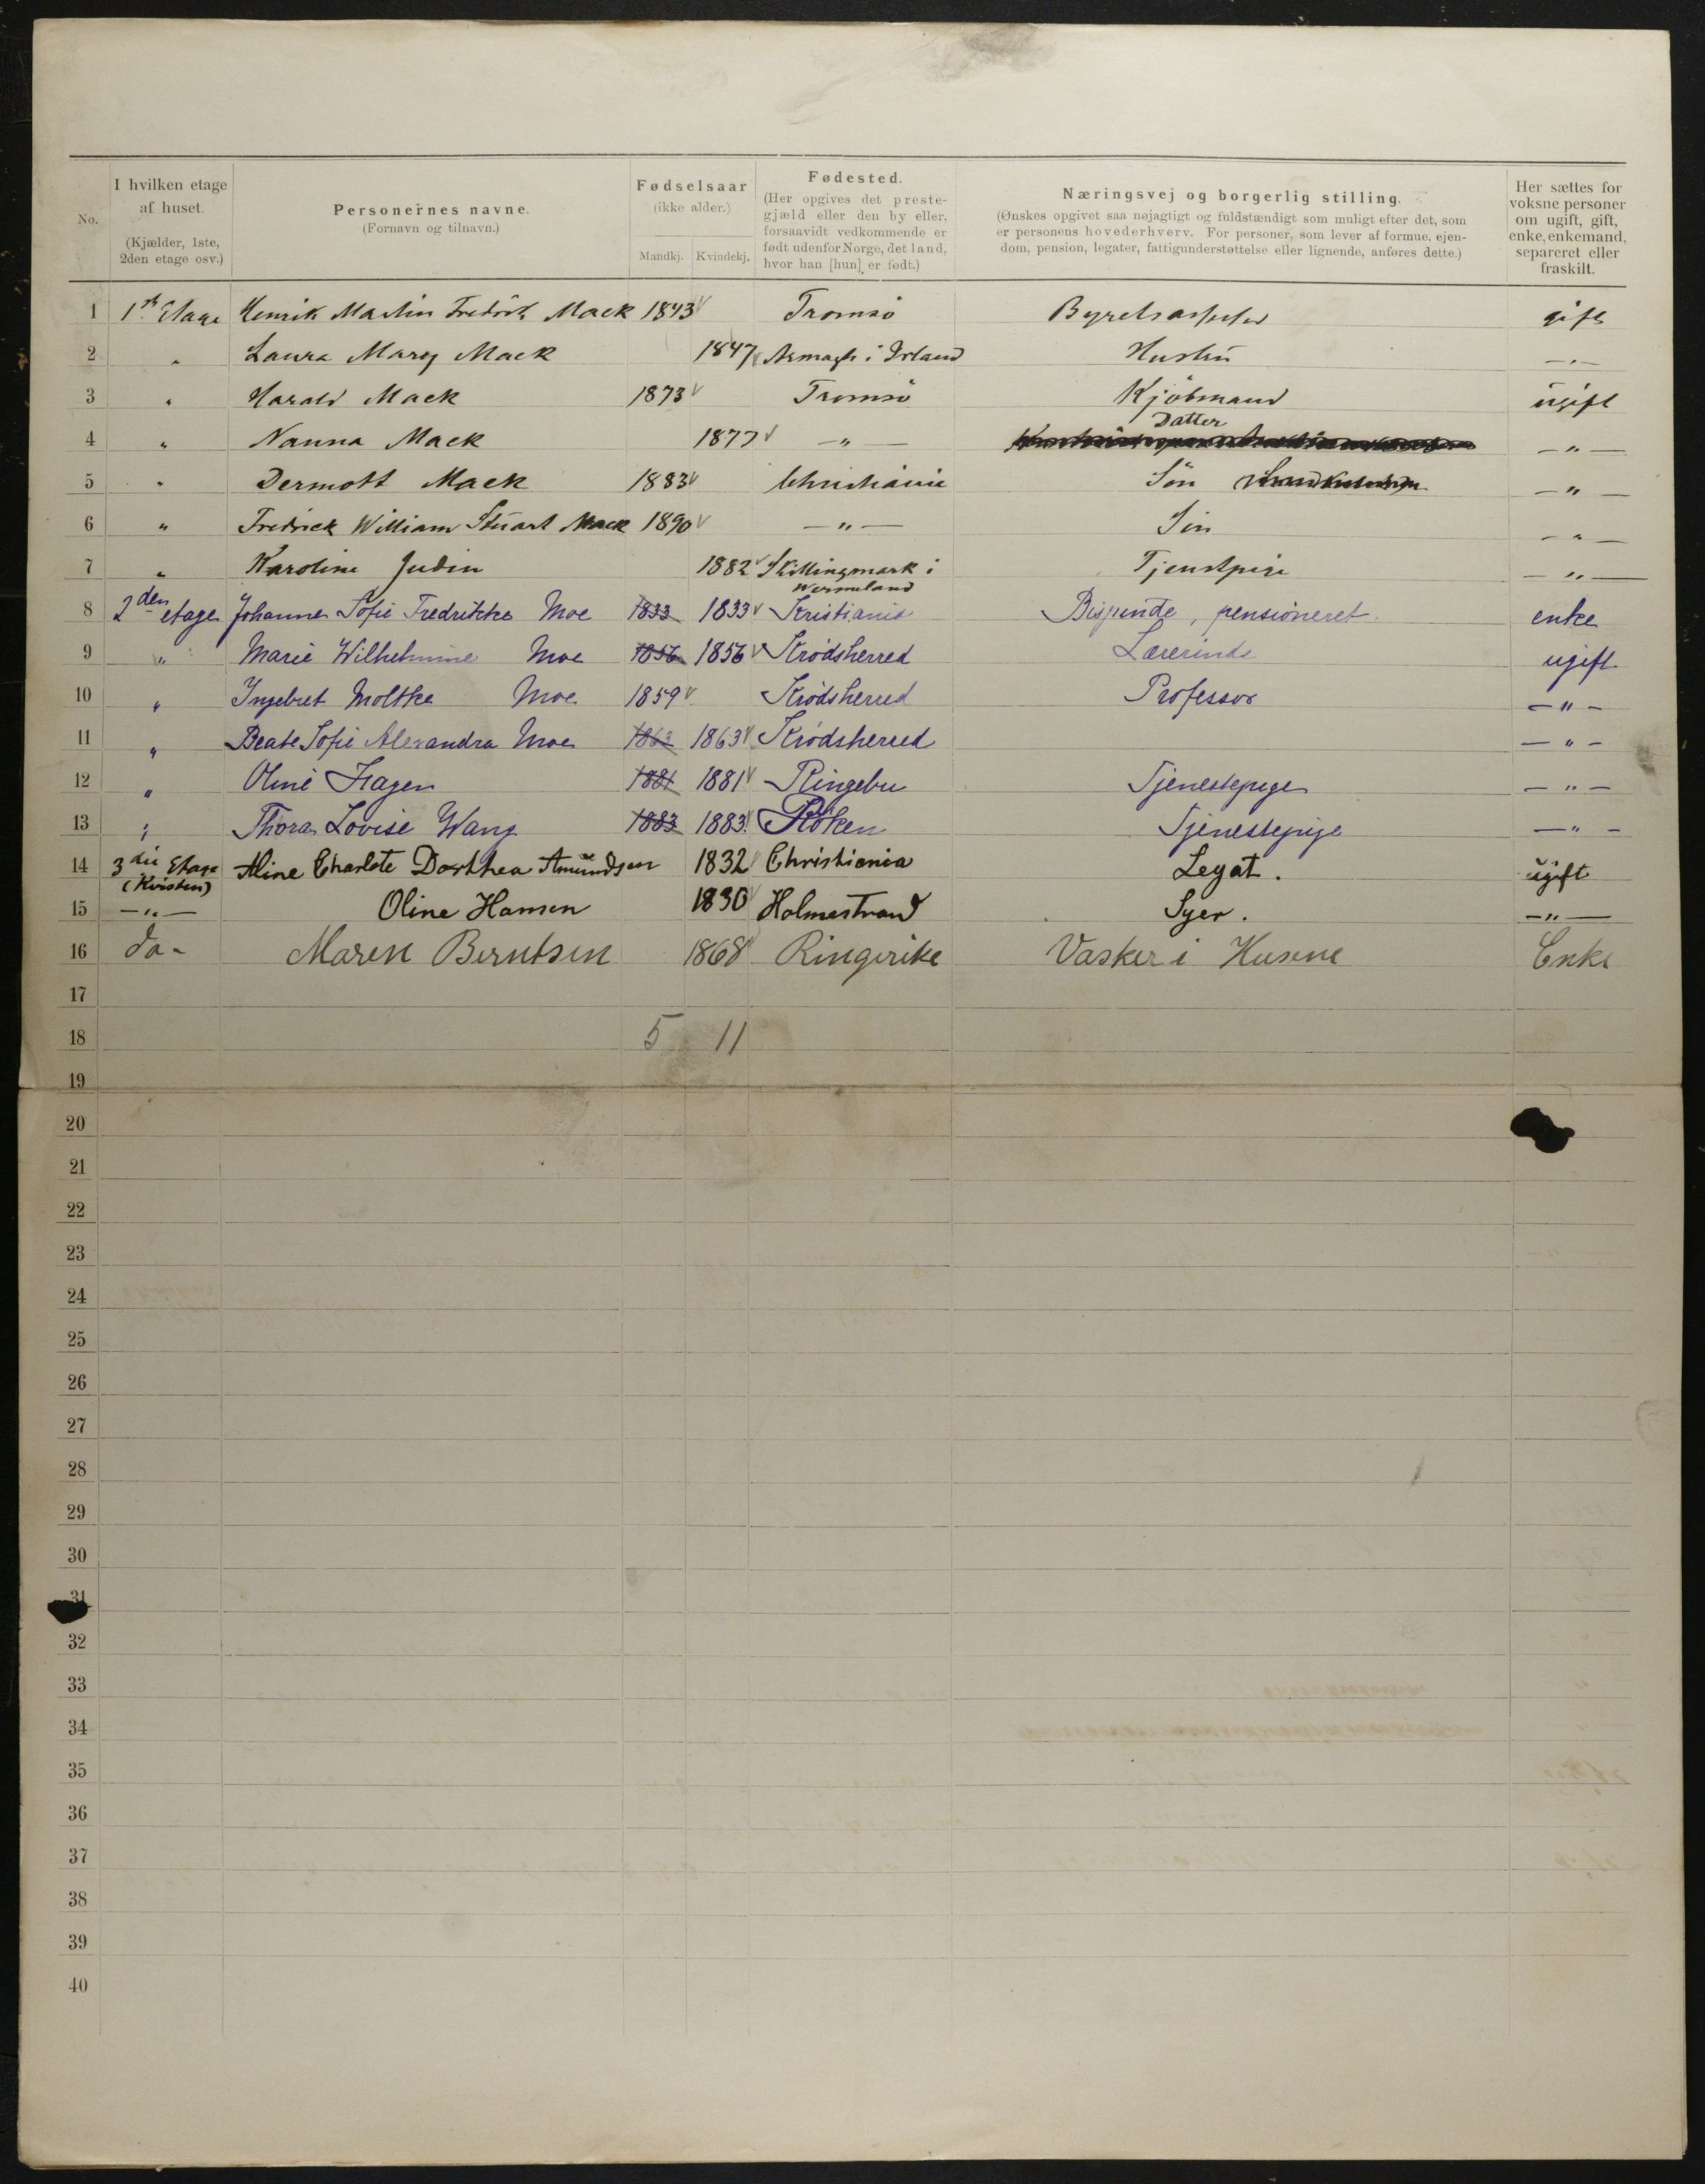 No.
I hvilken etage af huset. (Kjælder, 1ste, 2den etage osv.)
Personernes navne. (Fornavn og tilnavn.)
Fødselsaar (ikke alder.) Mandkj. Kvindekj.
Fødested. (Her opgives det prestegjæld eller den by eller, forsaavidt vedkommende er født udenfor Norge, det land, hvor han [hun] er født.)
Næringsvej og borgerlig stilling. (Ønskes opgivet saa nøjagtigt og fuldstændigt som muligt efter det, som er personens hovederhverv. For personer, som lever af formue, ejendom, pension, legater, fattigunderstøttelse eller lignende, anføres dette.)
Her sættes for voksne personer om ugift, gift, enke, enkemand, separeret eller fraskilt.
1 1ste Etage Henrik Martin Fredrik Mack 1843 Tromsö Byretsassessor gift
2 " Laura Mary Mack 1847 Armagh i Irland Hustru -"-
3 " Harald Mack 1873 Tromsö Kjöbmand ugift
4 " Nanna Mack 1877 -"- Datter -"-
5 " Dermott Mack 1883 Christiania Sön -"-
6 " Fredrick William Stuart Mack 1890 -"- Sön -"-
7 " Karoline Judin 1882 Skillingmark i Wermeland Tjenstpige -"-
8 2den etage Johanne Sofie Fredrikke Moe 1833 1833 Kristiania Bispinde, pensioneret enke
9 " Marie Wilhelmine Moe 1856 1856 Krødsherred Lærerinde ugift
10 " Ingebret Moltke Moe 1859 Krødsherred Professor -"-
11 " Beate Sofie Alexandra Moe 1863 1863 Krødsherred -"-
12 " Oline Hagen 1881 1881 Ringebu Tjenestepige -"-
13 " Thora Lovise Wang 1883 1883 Röken Tjenestepige -"-
14 3die Etage (Kvisten) Aline Charlote Dorthea Amundsen 1832 Christiania Legat. ugift
15 -"- Oline Hansen 1830 Holmestrand Syer. -"-
16 do- Maren Berntsen 1868 Ringerike Vasker i Husene Enke
17
18 5 11
19
20
21
22
23
24
25
26
27
28
29
30
31
32
33
34
35
36
37
38
39
40